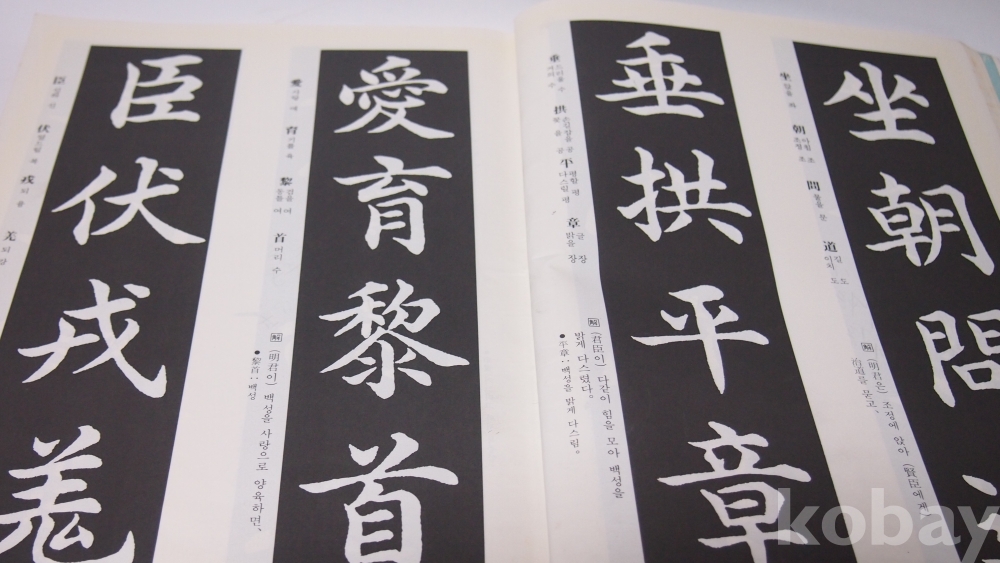 坐朝問
坐 앉을 좌
朝 아침 조
조정 조
問 물을 문
道 길 도
이치 도
解 (明君은) 조정에 앉아 (賢臣에게)
治道를 묻고,
垂拱平章
垂 드리울 수
拱 손길잡을 공
平 평할 평
다스릴 평
章 글 장
밝을 장
解 (君臣이) 다같이 힘을 모아 백성을
밝게 다스렸다.
●平章:백성을 밝게 다스림。
愛育黎首
愛 사랑 애
育 기를 육
黎 검을 여
동틀 여
首 머리 수
解 (明君이) 백성을 사랑으로 양육하면、
●黎首:백성
臣伏戎羌
臣 신하 신
伏 엎드릴 복
戎 되 융
羌 되 강
kobay